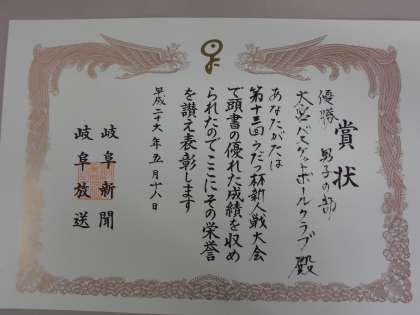 賞状
優勝 男子の部
大宮バスケットボールクラブ 殿
あなたがたは
第十三回うだつ杯新人戦大会
で頭書の優れた成績を収め
られたのでここにその栄誉
を讃え表彰します
平成二十六年五月十八日
岐阜新聞
岐阜放送